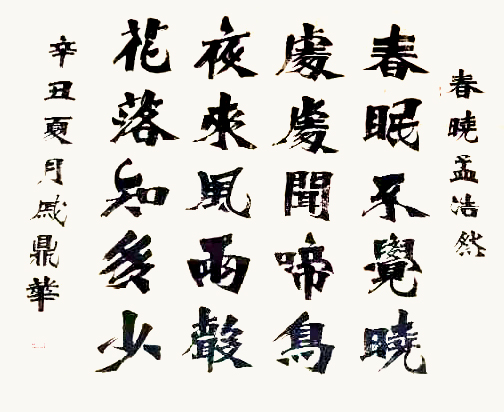 春曉孟浩然
春眠不覺曉
處處聞啼鳥
夜來風雨聲
花落知多少
辛丑夏月戚鼎華